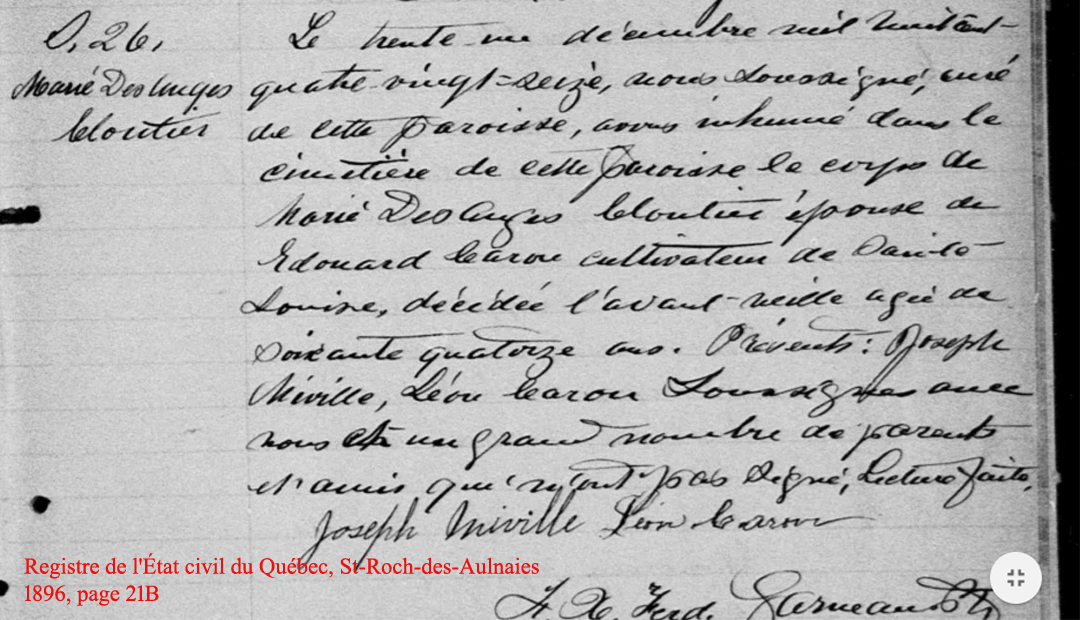 S. 26.
Marie Des Anges
Cloutier
Le trente un décembre mil huit cent
quatre-vingt-seize, nous soussigné, curé
de cette paroisse, avons inhumé dans le
cimetière de cette paroisse le corps de
Marie Des Anges Cloutier épouse de
Edouard Caron cultivateur de Sainte
Louise, décédée l'avant-veille agée de
soixante quatorze ans. Présents: Joseph
Miville, Léon Caron Soussignés avec
nous et un grand nombre de parents
et amis qui n'ont pas signé, Lecture faite.
Joseph Miville Léon Caron
F. X. Ferd. Garneau Ptre
Registre de l'État civil du Québec, St-Roch-des-Aulnaies
1896, page 21B